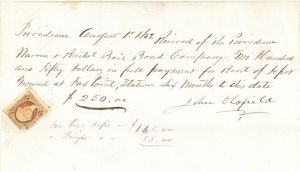 Providence August 1st 186 Received of the Providence
Warren & Bristol Rail Road Company, Two Hundred
and Fifty dollars in full payment for Rent of Depot
Ground at Fox Point, Station Six Months to this date
$ 250.00 John Oldfield
For Pass depo - $
" Freight " - 55.00